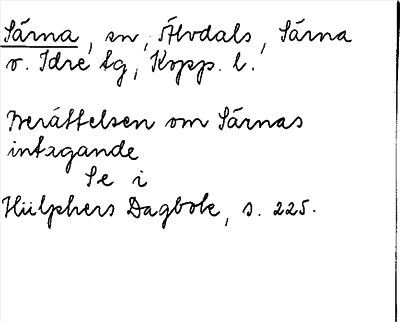 Särna, sn, Älvdals, Särna
o. Idre tg, Kopp. l.
Berättelsen om Särnas
intagande
Se i
Hülphers Dagbok, s. 225.